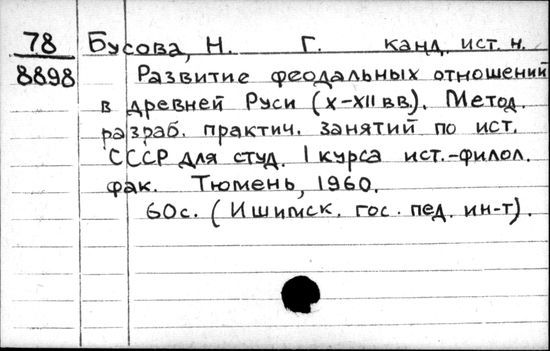 78 Бусова, Н. Г. канд. ист. н.
8898 Развитие феодальных отношений
в древней Руси (X-XII вв.). Метод.
разраб. практич. занятий по ист.
СССР для студ. 1 курса ист.-филол.
фак. Тюмень, 1960.
60с. (Ишимск. гос. пед. ин-т).